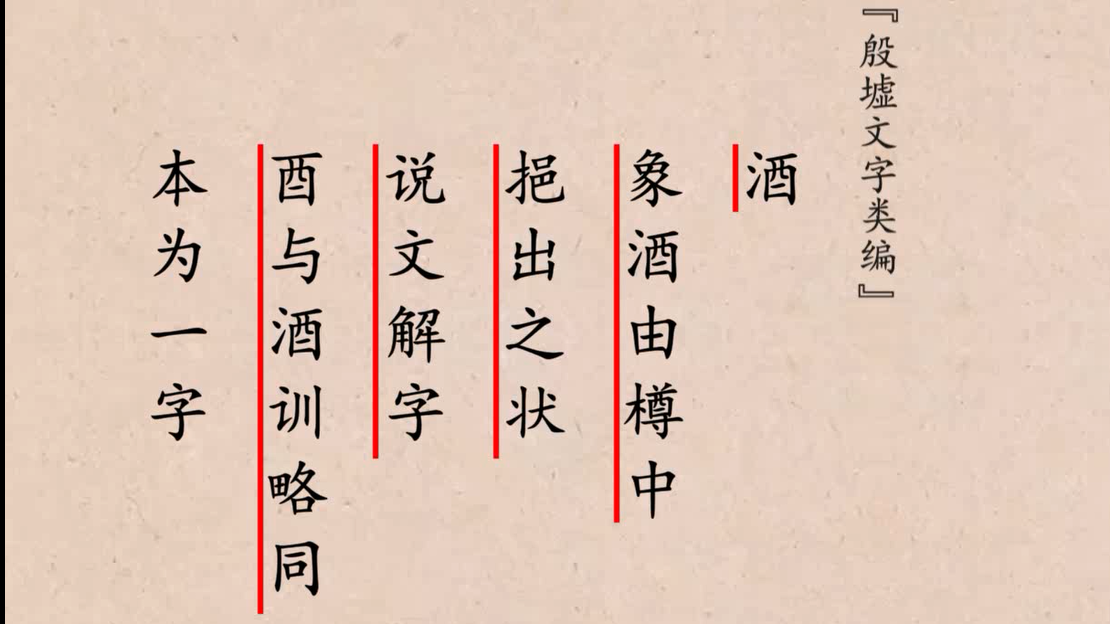 『殷墟文字类编』
酒
象酒由樽中
挹出之状
说文解字
酉与酒训略同
本为一字